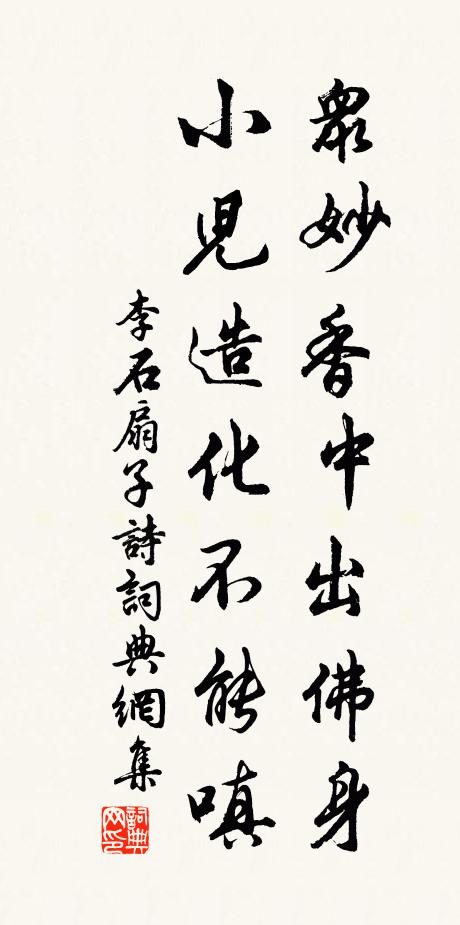 眾妙香中出佛身
小児造化不能嗔
李石扇子詩詞典網集
詞典网印